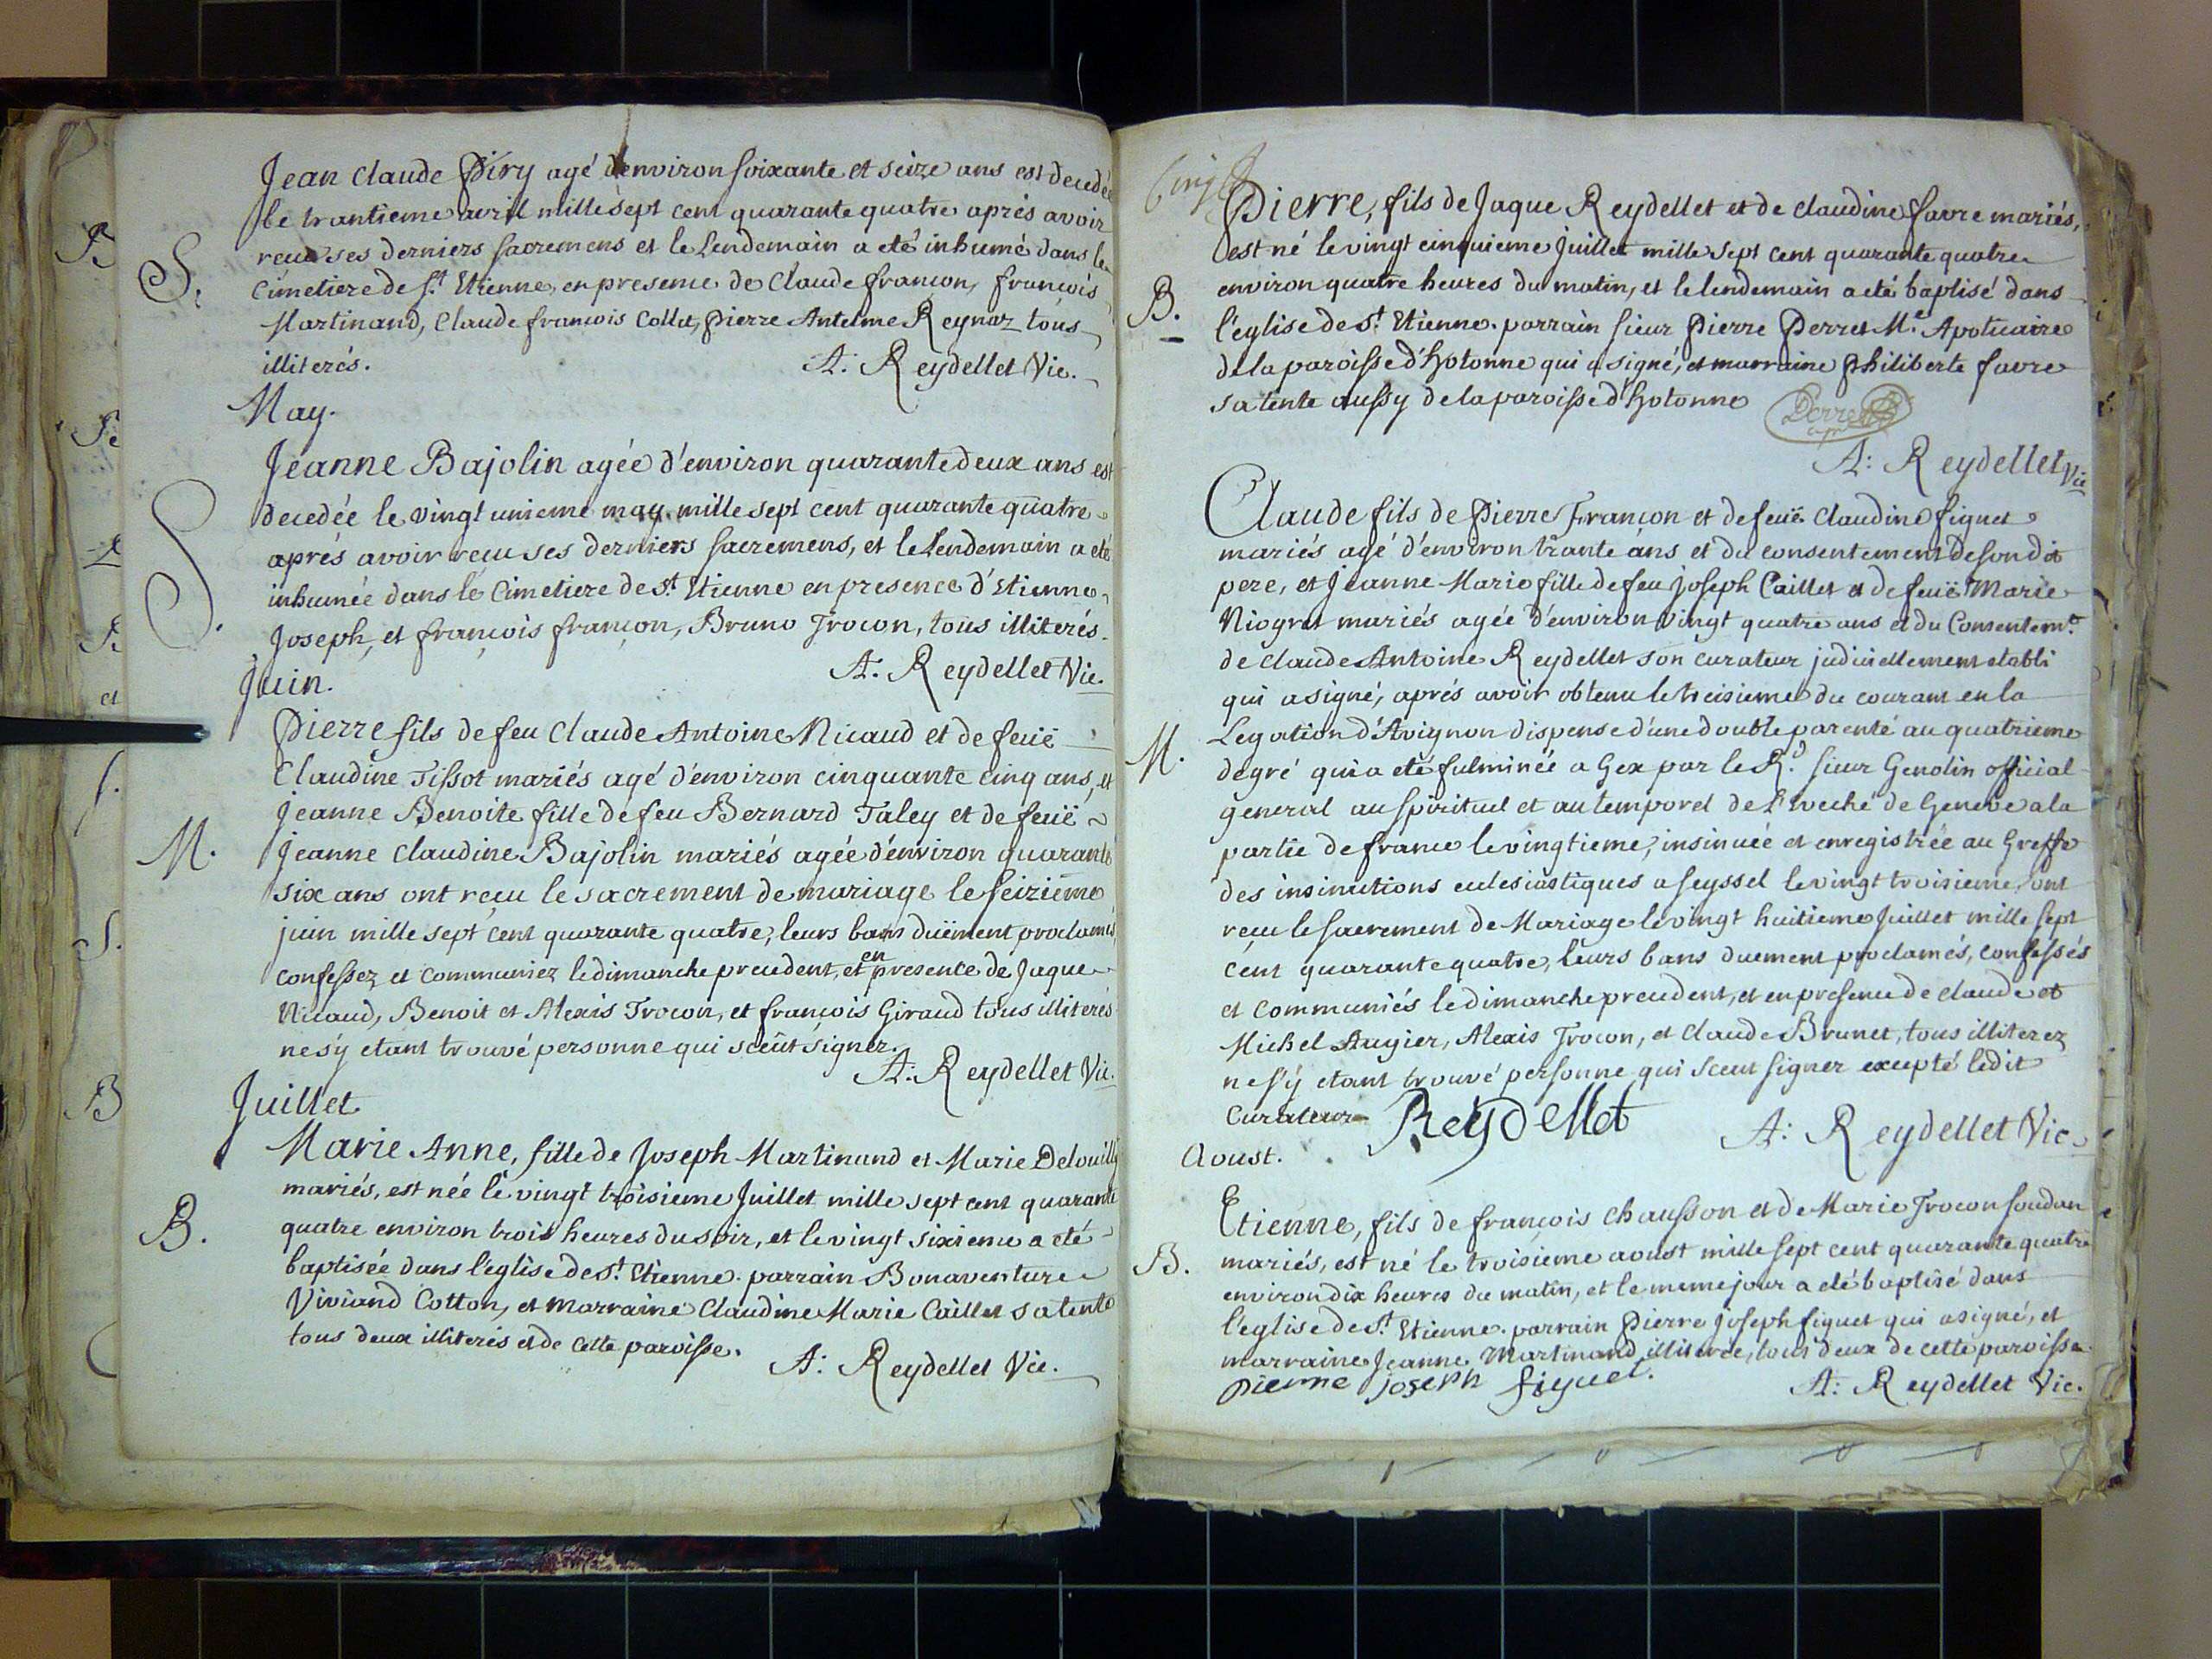 Jean claude Piry agé d'environ soixante et seize ans est decedé
le trantieme avril mille sept cent quarante quatre aprés avoir
reçu ses derniers sacremens et le lendemain a eté inhumé dans le
S. cimetiere de St. Etienne, en presence de Claude françon, françois
Martinand, Claude françois Collet, pierre Antelme Reynaz tous
illiterés. A: Reydellet Vic.
May.
Jeanne Bajolin agée d'environ quarante deux ans est
decedée le vingt unieme may mille sept cent quarante quatre
aprés avoir reçu ses derniers sacremens, et le lendemain a eté
S. inhumée dans le Cimetiere de St. Etienne en presence d'Etienne,
Joseph, et françois françon, Bruno Trocon, tous illiterés.
A. Reydellet Vic.
Juin.
Pierre fils de feu Claude Antoine Nicaud et de feuë
Claudine Tissot mariés agé d'environ cinquante cinq ans, et
Jeanne Benoite fille de feu Bernard Taley et de feuë
M. Jeanne Claudine Bajolin mariés agée d'environ quarante
six ans ont reçu le sacrement de mariage le seizieme
juin mille sept cent quarante quatre, leurs bans duëment proclamés
confessez et communiez le dimanche precedent, et en presence de Jaque
Nicaud, Benoit et Alexis Trocon, et françois Giraud tous illiterés
ne s'y etant trouvé personne qui sceût signer.
A: Reydellet Vic.
Juillet
Marie Anne, fille de Joseph Martinand et Marie Delouilly
mariés, est née le vingt troisieme Juillet mille sept cent quarante
B. quatre environ trois heures du soir, et le vingt sixieme a eté
baptisée dans l'eglise de St. Etienne. parrain Bonaventure
Viviand Cotton, et marraine Claudine Marie Caillet sa tente
tous deux illiterés et de cette paroisse.
A: Reydellet Vic.
Pierre, fils de Jaque Reydellet et de claudine favre mariés,
est né le vingt cinquieme juillet mille sept cent quarante quatre
environ quatre heures du matin, et le lendemain a eté baptisé dans
B. l'eglise de St. Etienne. parrain sieur Pierre Perret Me. Apoticaire
de la paroisse d'hotonne qui a signé, et marraine Philiberte favre
sa tente aussy de la paroisse d'hotonne Perret
A: Reydellet Vic
Claude fils de Pierre Françon et de feuë Claudine figuet
mariés agé d'environ trante ans et du consentement de son dit
pere, et Jeanne Marie fille de feu Joseph Caillet et de feuë Marie
Niogret mariés agée d'environ vingt quatre ans et du Consentemt.
de claude Antoine Reydellet son curateur judiciellement etabli
qui a signé, aprés avoir obtenu le treisieme du courant en la
Legation d'Avignon dispense d'une double parenté au quatrieme
M. degré qui a eté fulminée a Gex par le Rd. sieur Genolin official
general au spirituel et au temporel de l'Eveché de Geneve a la
partie de france le vingtieme, insinuée et enregistrée au Greffe
des insinuations eclesiastiques a seyssel le vingt troisieme, ont
reçu le sacrement de Mariage le vingt huitieme Juillet mille sept
cent quarante quatre, leurs bans duement proclamés, confessés
et communiés le dimanche precedent, et en presence de claude et
Michel Augier, Alexis Trocon, et Claude Brunet, tous illiterez
ne s'y etant trouvé personne qui sceut signer excepté ledit
curateur Reydellet A: Reydellet Vic.
Aoust.
Etienne, fils de françois chausson et de Marie Trocon soudan
B. mariés, est né le troisieme aoust mille sept cent quarante quatre
environ dix heures du matin, et le meme jour a eté baptisé dans
l'eglise de St. Etienne. parrain Pierre joseph figuet qui a signé, et
marraine Jeanne Martinand illiterée, tous deux de cette paroisse.
pierre joseph figuet. A: Reydellet Vic.